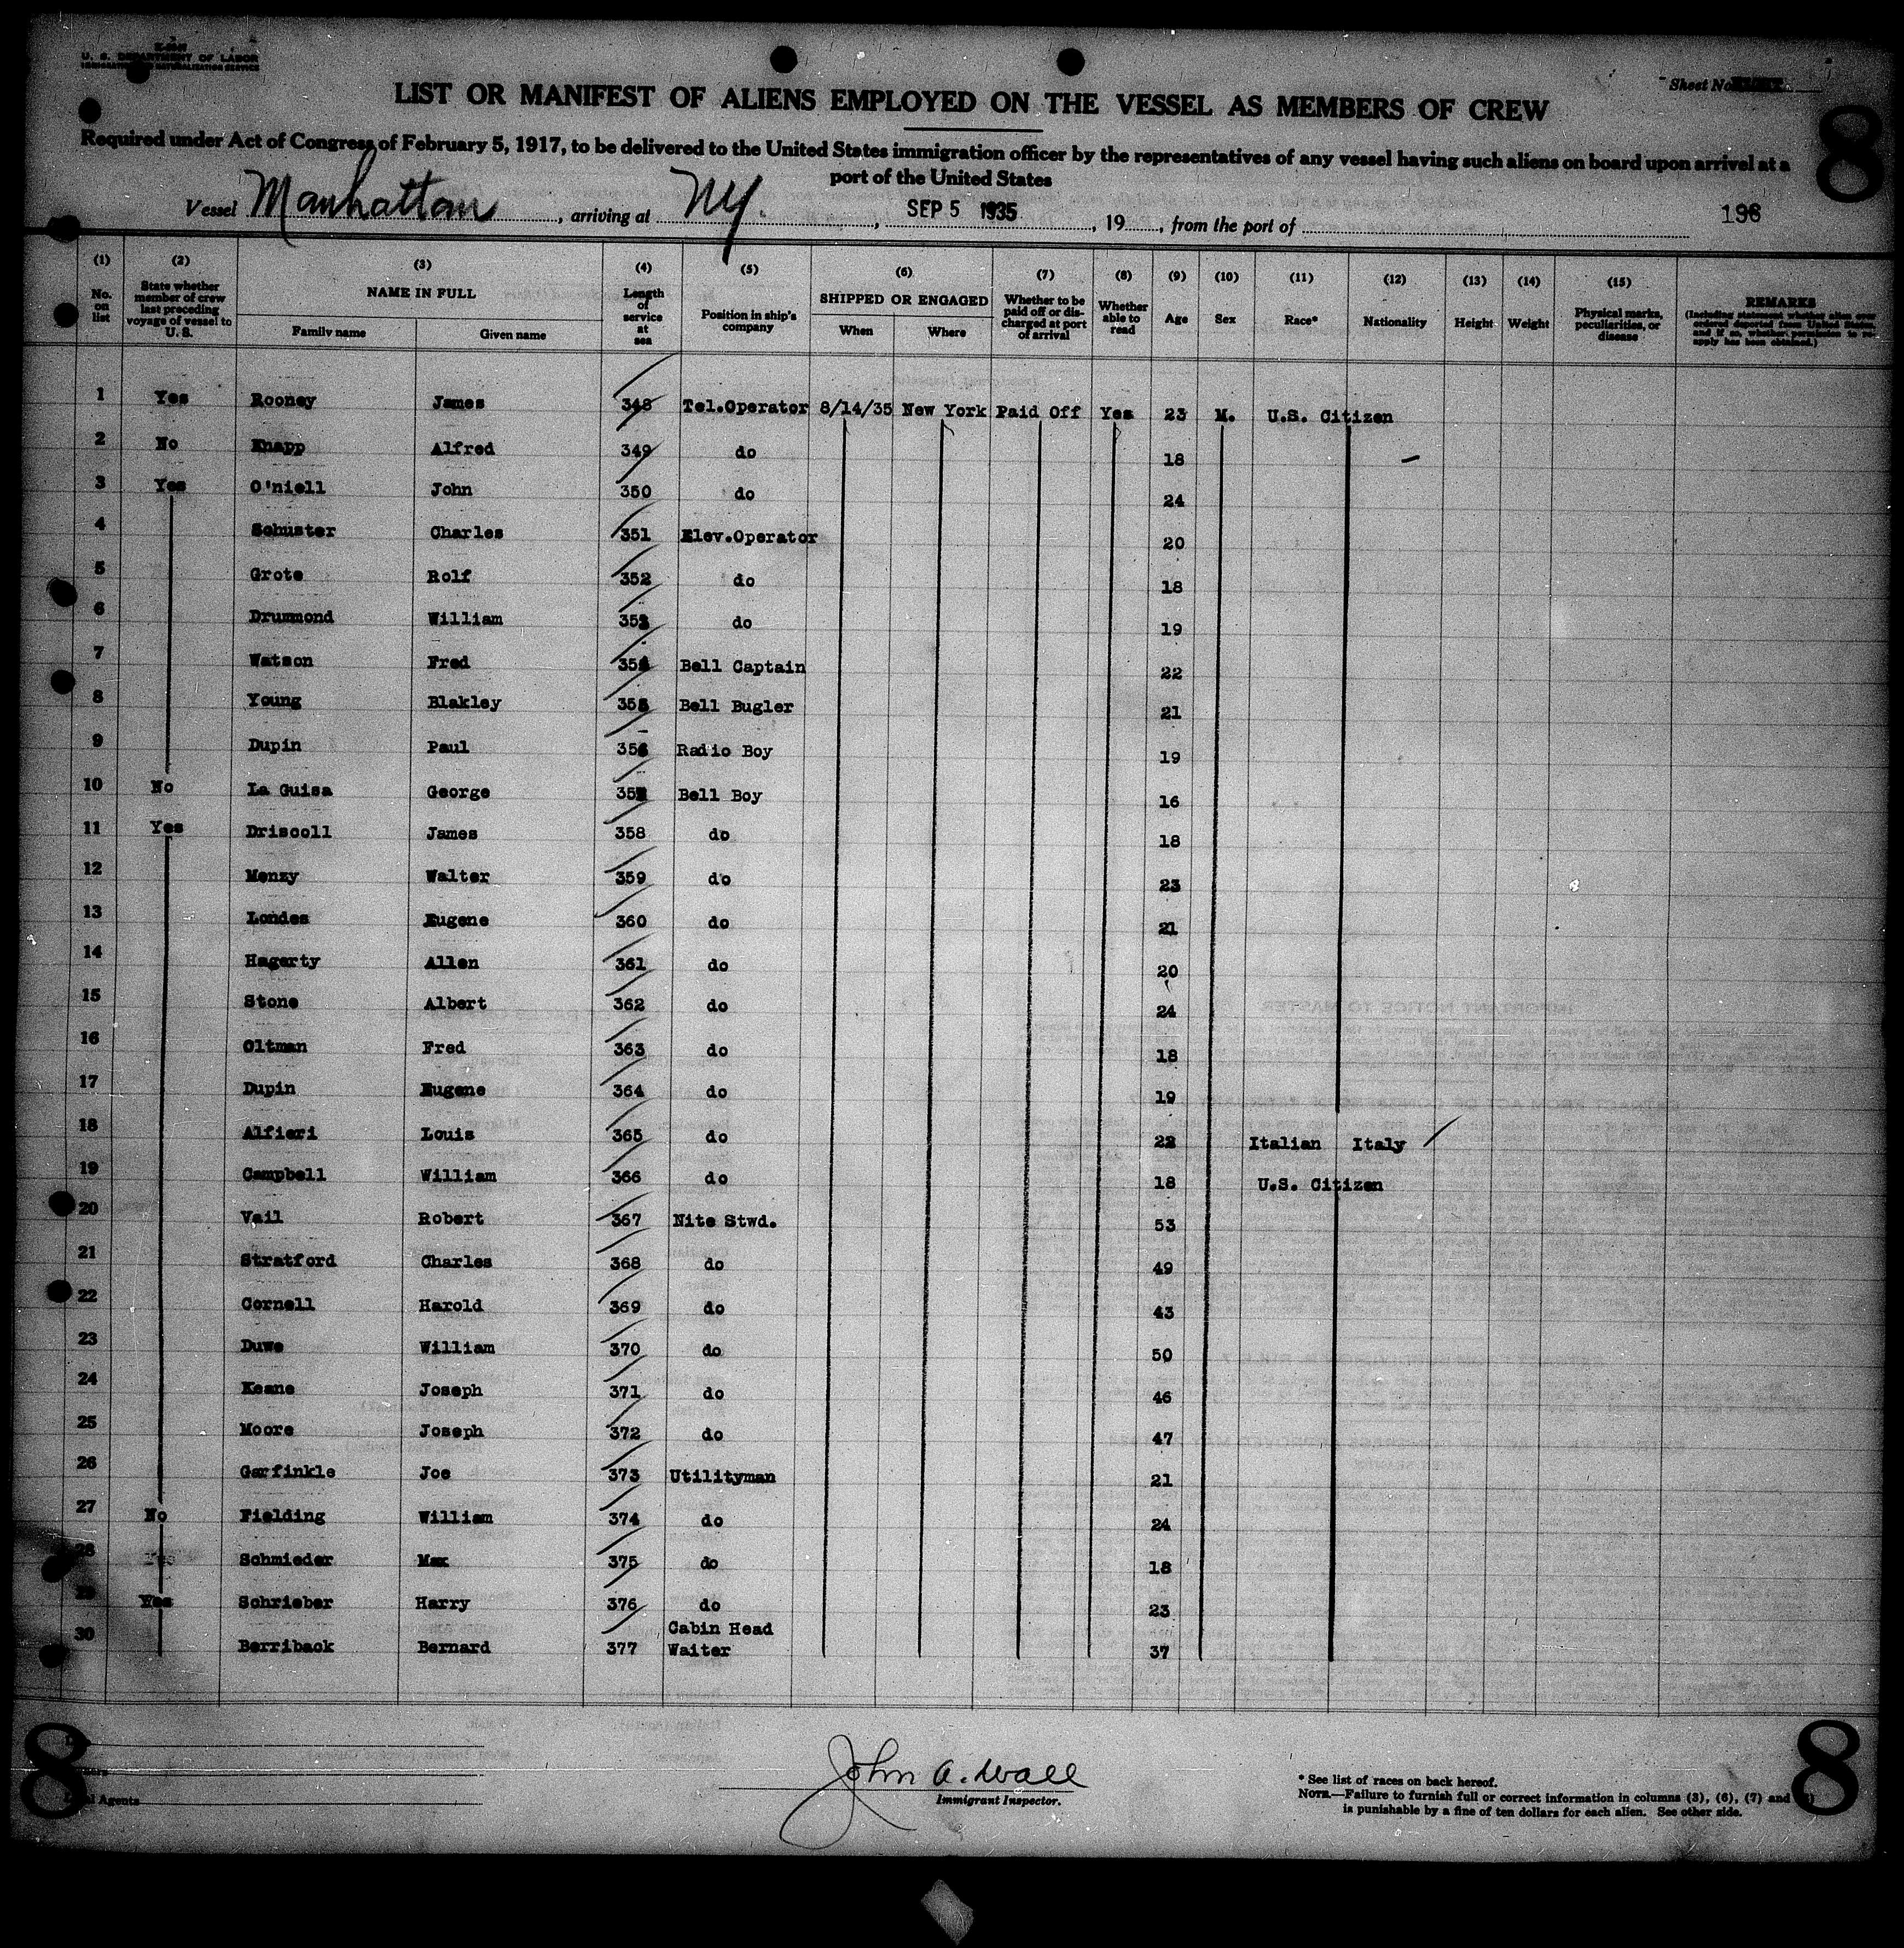 U. S. DEPARTMENT OF LABOR
IMMIGRATION AND NATURALIZATION SERVICE
Sheet No.
LIST OR MANIFEST OF ALIENS EMPLOYED ON THE VESSEL AS MEMBERS OF CREW
8
Required under Act of Congress of February 5, 1917, to be delivered to the United States immigration officer by the representatives of any vessel having such aliens on board upon arrival at a
port of the United States
Vessel Manhattan, arriving at NY., SEP 5 1935, 19, from the port of
196
(1) No. on list
(2) State whether member of crew last preceding voyage of vessel to U. S.
(3) NAME IN FULL Family name Given name
(4) Length of service at sea
(5) Position in ship's company
(6) SHIPPED OR ENGAGED When Where
(7) Whether to be paid off or discharged at port of arrival
(8) Whether able to read
(9) Age
(10) Sex
(11) Race*
(12) Nationality
(13) Height
(14) Weight
(15) Physical marks, peculiarities, or disease
REMARKS (Including statement whether alien ever ordered deported from United States, and if so, whether permission to reapply has been obtained.)
1 Yes Rooney James 348 Tel.Operator 8/14/35 New York Paid Off Yes 23 M. U.S. Citizen
2 No Knapp Alfred 349 do 18
3 Yes O'niell John 350 do 24
4 Schuster Charles 351 Elev.Operator 20
5 Grote Rolf 352 do 18
6 Drummond William 353 do 19
7 Watson Fred 354 Bell Captain 22
8 Young Blakley 355 Bell Bugler 21
9 Dupin Paul 356 Radio Boy 19
10 No La Guisa George 357 Bell Boy 16
11 Yes Driscoll James 358 do 18
12 Menzy Walter 359 do 23
13 Londes Eugene 360 do 21
14 Hagerty Allen 361 do 20
15 Stone Albert 362 do 24
16 Oltman Fred 363 do 18
17 Dupin Eugene 364 do 19
18 Alfieri Louis 365 do 22 Italian Italy
19 Campbell William 366 do 18 U.S. Citizen
20 Vail Robert 367 Nite Stwd. 53
21 Stratford Charles 368 do 49
22 Cornell Harold 369 do 43
23 Duwe William 370 do 50
24 Keane Joseph 371 do 46
25 Moore Joseph 372 do 47
26 Garfinkle Joe 373 Utilityman 21
27 No Fielding William 374 do 24
28 Yes Schmieder Max 375 do 18
29 Yes Schrieber Harry 376 do 23
30 Berriback Bernard 377 Cabin Head Waiter 37
8
Agents
John A. Wall
Immigrant Inspector.
* See list of races on back hereof.
NOTE.—Failure to furnish full or correct information in columns (3), (6), (7) and
is punishable by a fine of ten dollars for each alien. See other side.
8